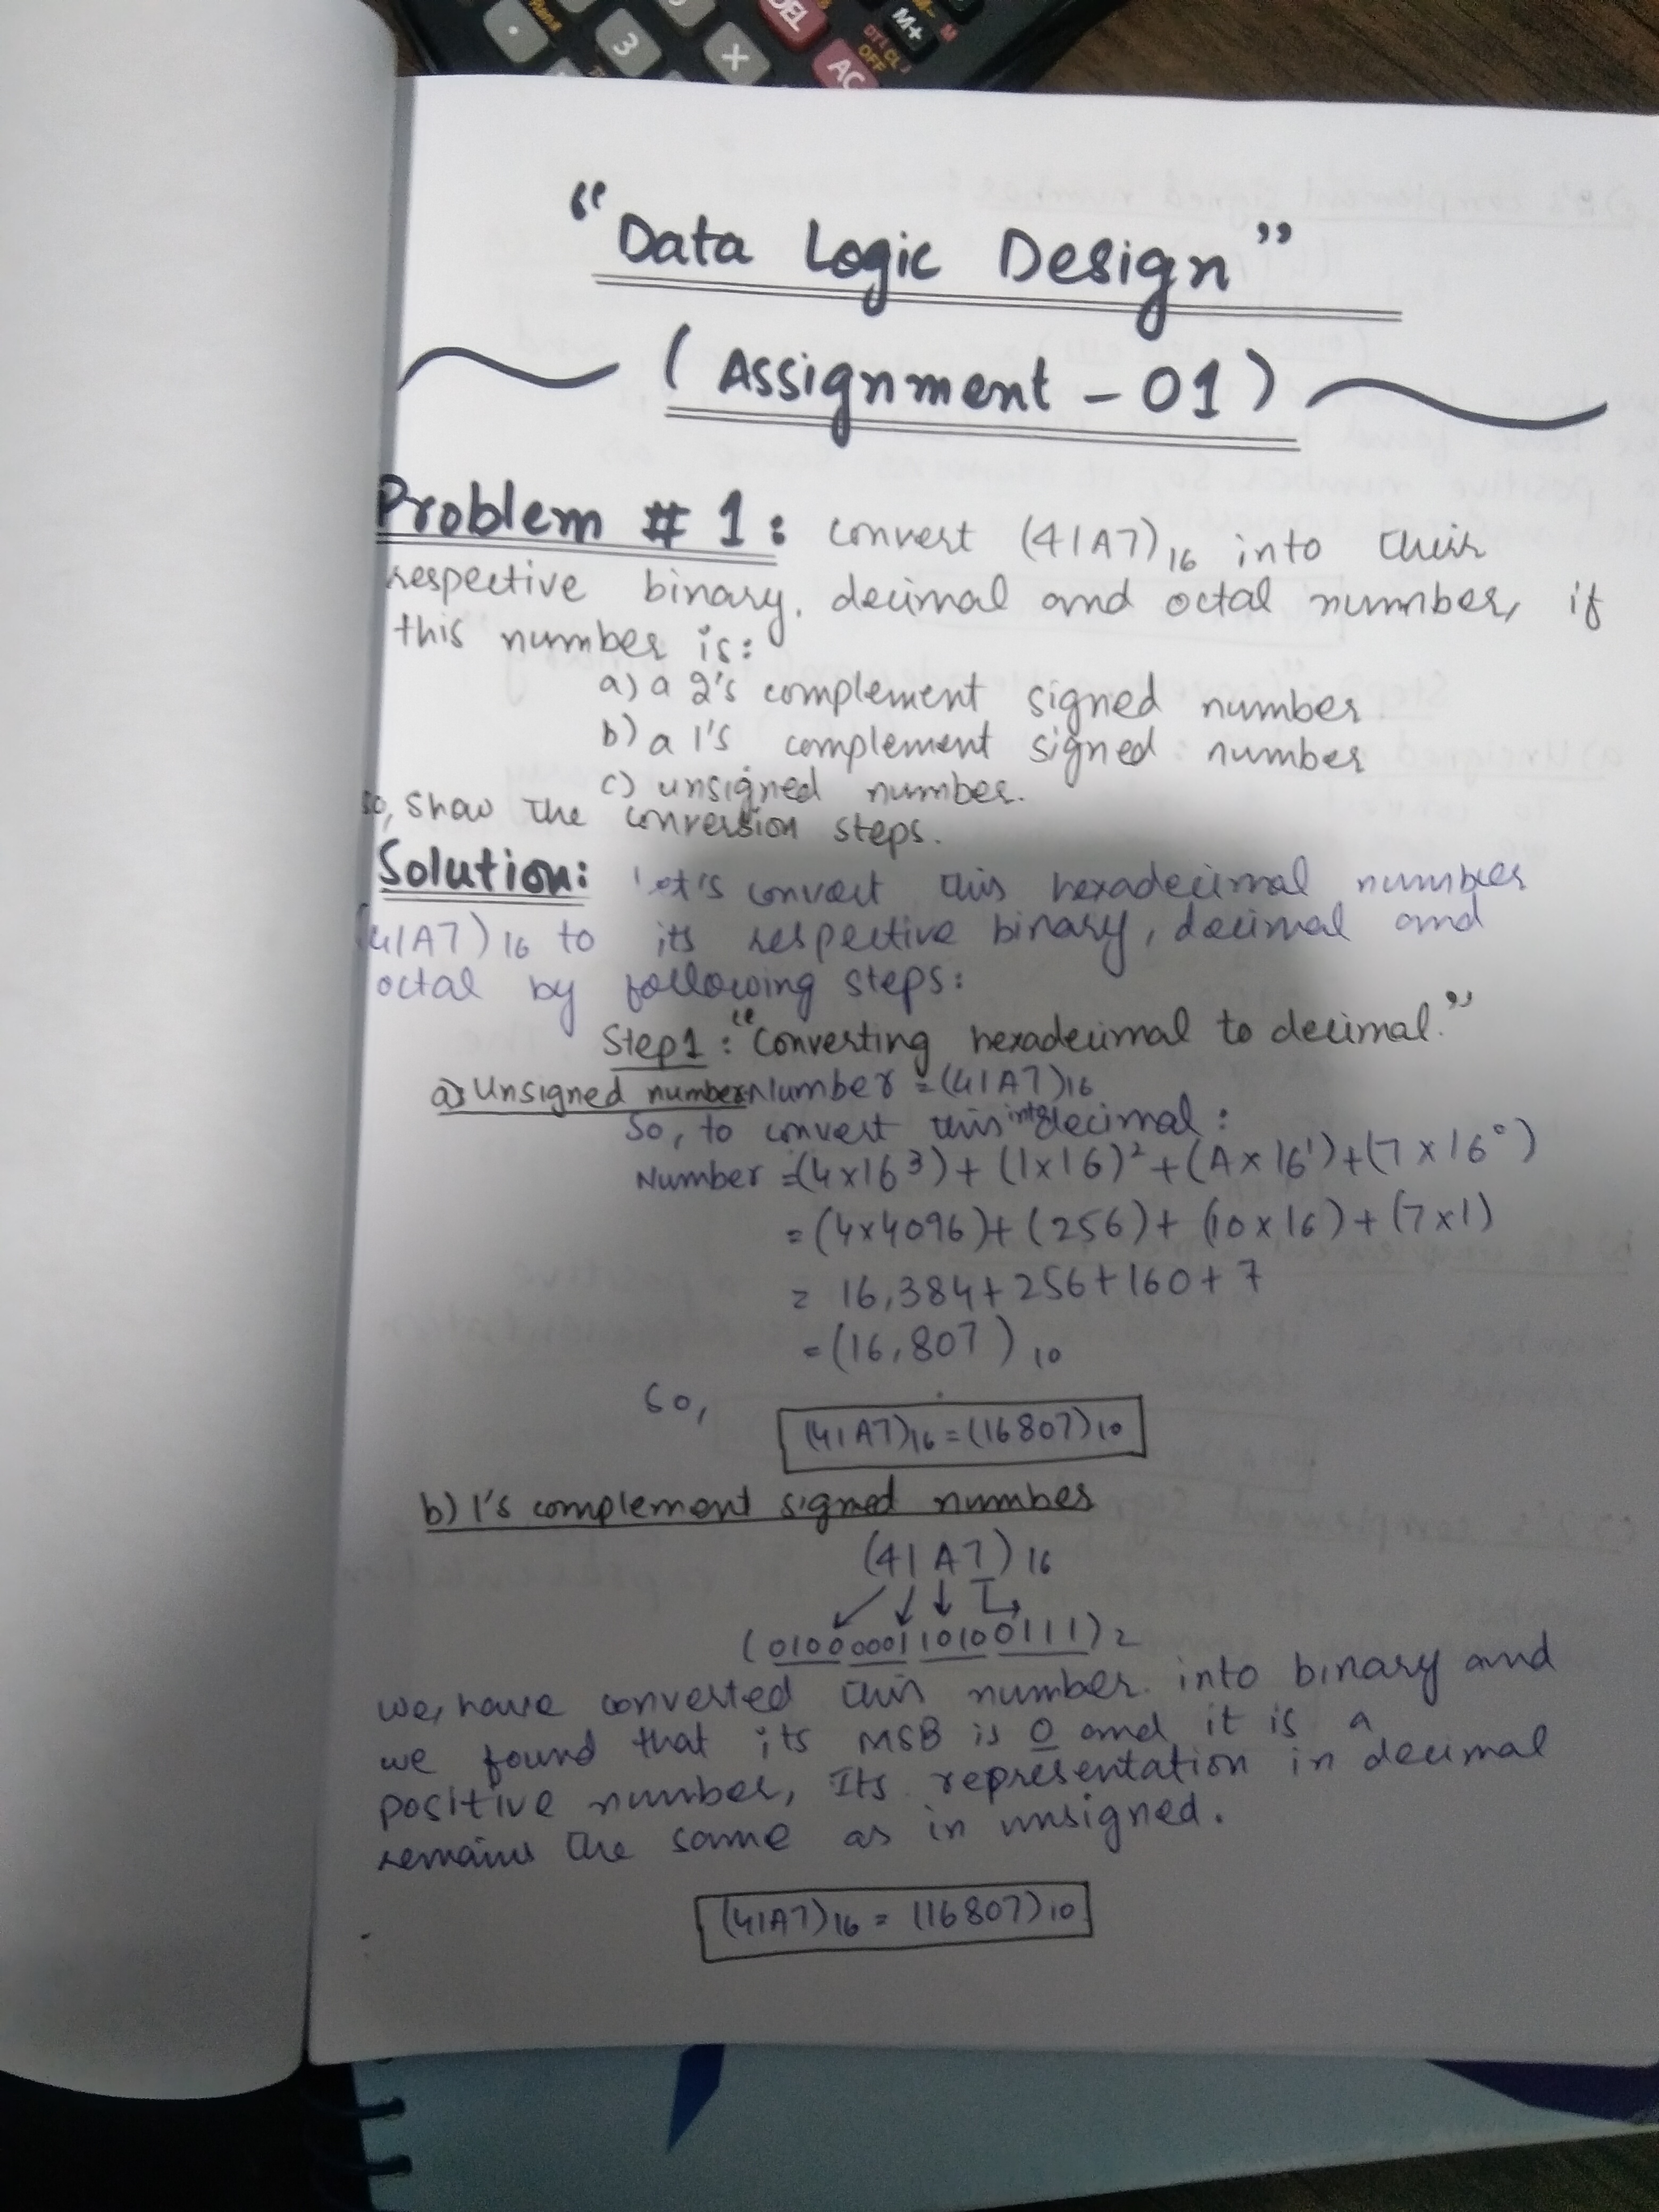 3
X
DEL
AC
M+
M-
M
DT(CL)
OFF
“Data Logic Design”
(Assignment - 01)
Problem # 1: Convert (41A7)16 into their
respective binary, decimal and octal number, if
this number is:
a) a 2's complement signed number
b) a 1's complement signed number
c) unsigned number.
so, show the conversion steps.
Solution: Let's convert this hexadecimal number
(41A7)16 to its respective binary, decimal and
octal by following steps:
Step1: “Converting hexadecimal to decimal.”
a) Unsigned number Number = (41A7)16
So, to convert this into decimal:
Number = (4x16³) + (1x16)² + (A x 16¹) + (7 x 16⁰)
= (4x4096) + (256) + (10 x 16) + (7x1)
= 16,384 + 256 + 160 + 7
= (16,807)10
So,
(41A7)16 = (16807)10
b) 1's complement signed number
(41A7)16
(0100000110100111)2
we, have converted this number into binary and
we found that its MSB is 0 and it is a
positive number, Its representation in decimal
remains the same as in unsigned.
(41A7)16 = (16807)10